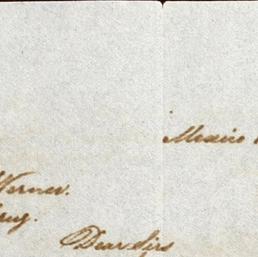 Mexico
Werner.
Dear Sirs